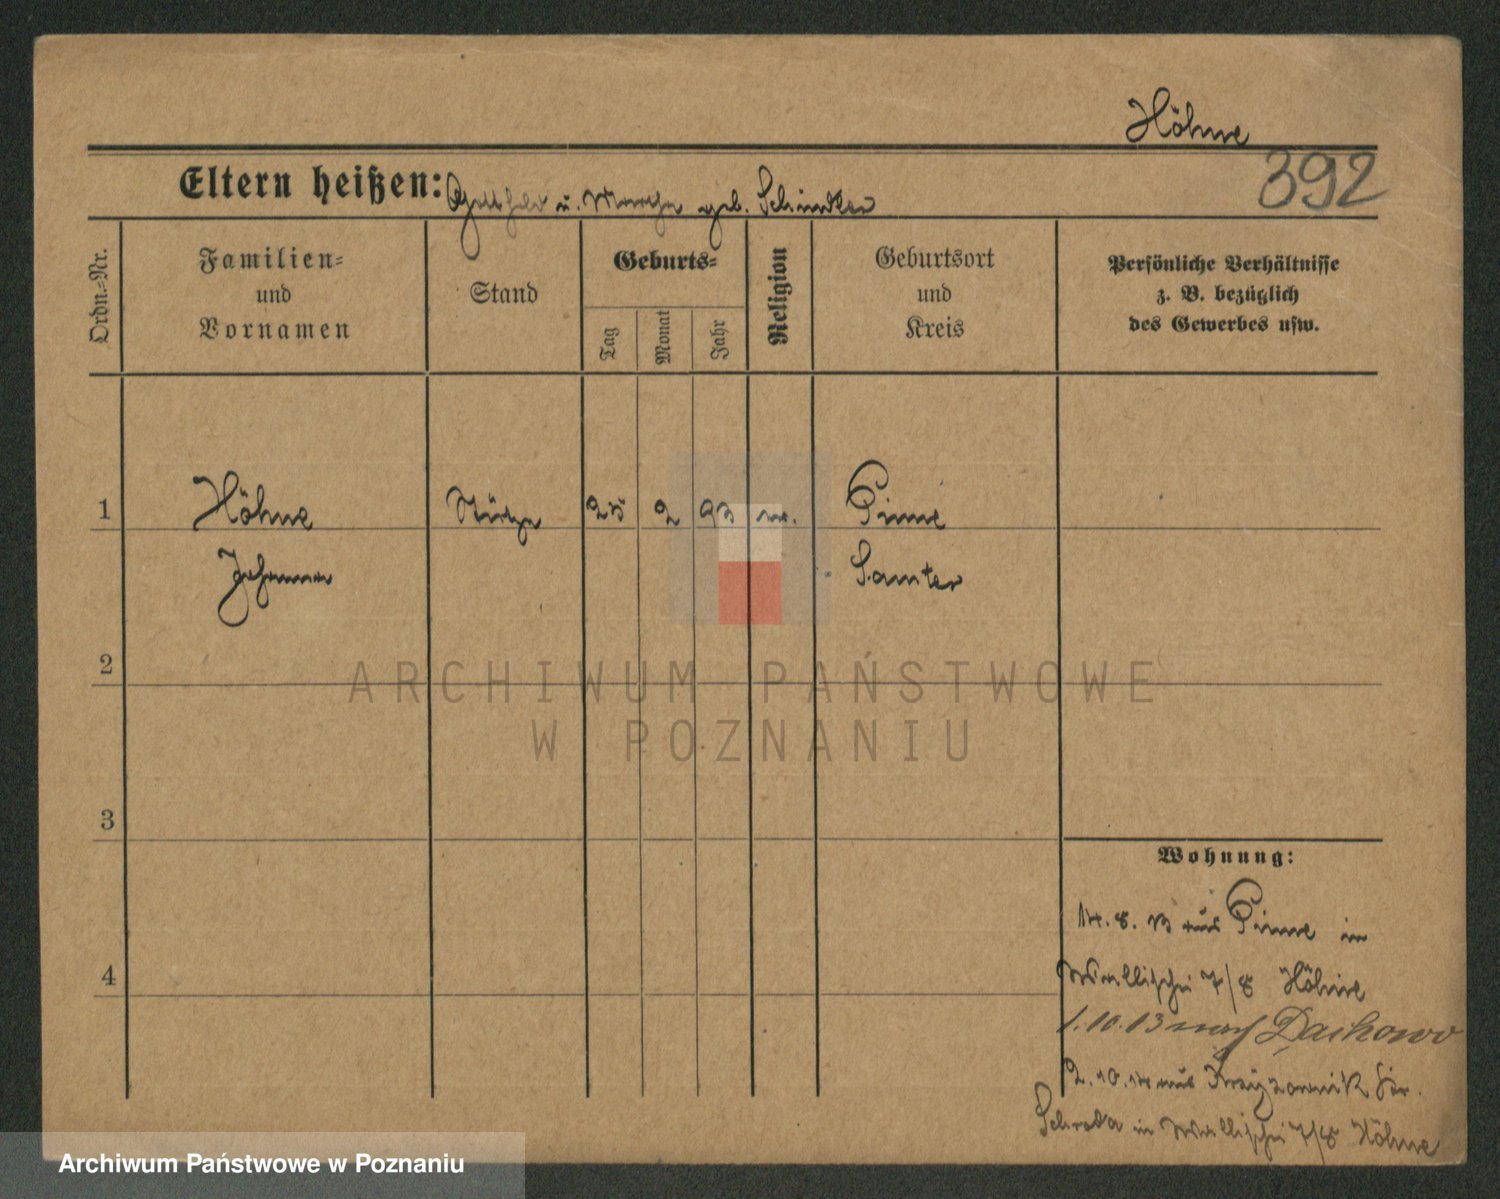 Höhne
392
Eltern heißen: Gotthold u. Martha geb. Schindler
Ordn.-Nr.
Familien-
und
Vornamen
Stand
Geburts-
Tag
Monat
Jahr
Religion
Geburtsort
und
Kreis
Persönliche Verhältnisse
z. B. bezüglich
des Gewerbes usw.
1
Höhne
Stütze
25
2
93
ev.
Pinne
Johanna
Samter
2
ARCHIWUM PAŃSTWOWE
W POZNANIU
3
Wohnung:
14. 8. 13 aus Pinne in
4
Wallischei 7/8 Höhne
1.10.13 nach Dachowo
2.10.14 aus Kr.
Schroda in Wallischei 7/8 Höhne
Archiwum Państwowe w Poznaniu